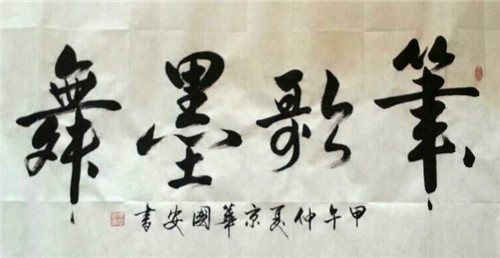 筆歌墨舞
甲午仲夏京華國安書